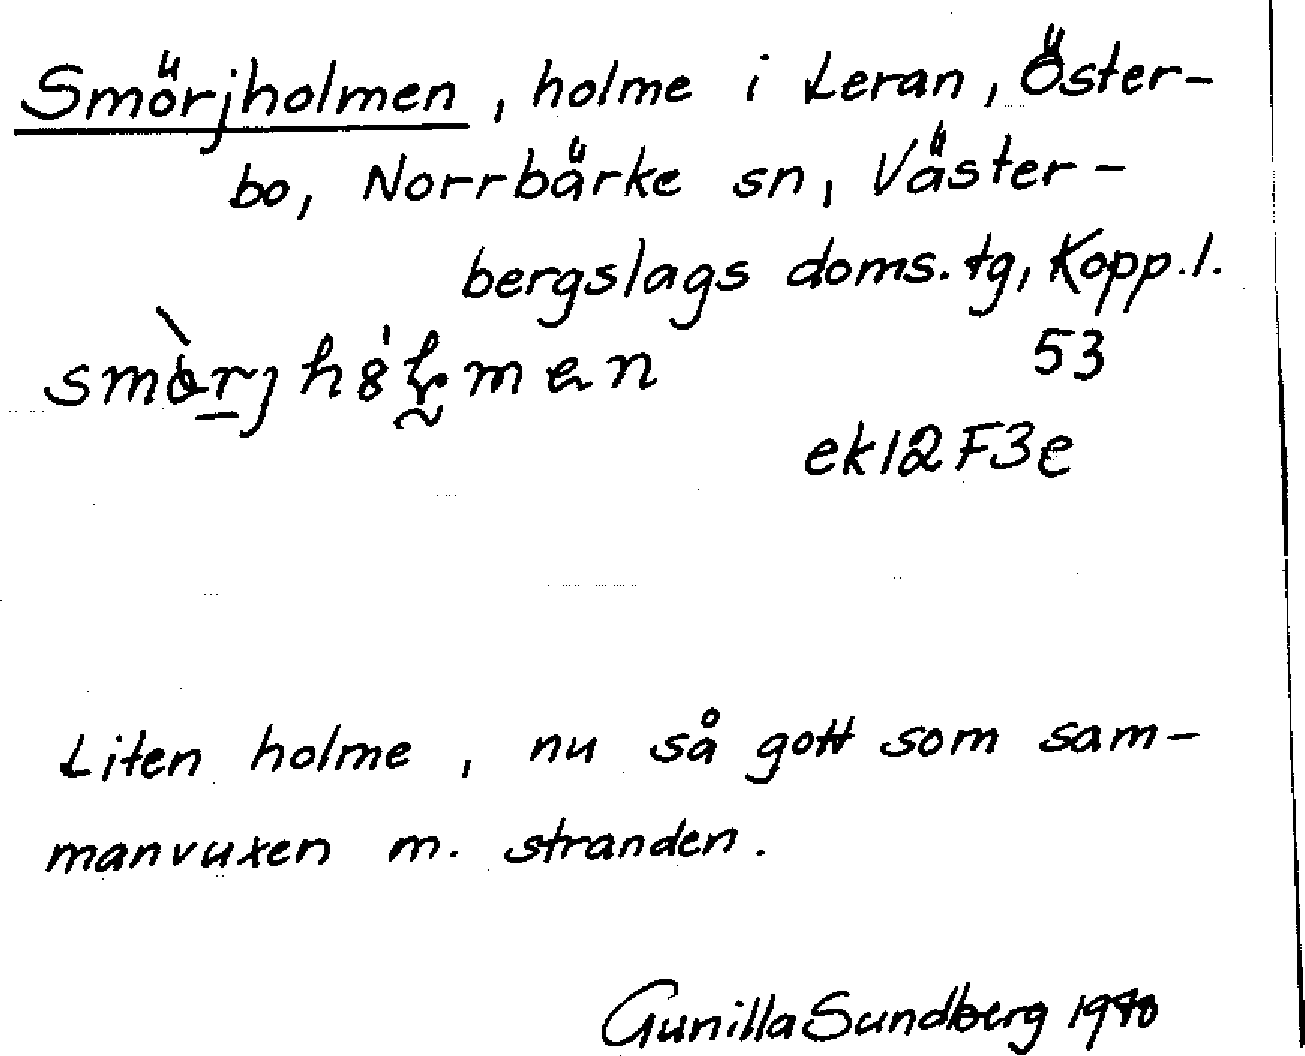 Smörjholmen, holme i Leran, Öster-
bo, Norrbärke sn, Väster-
bergslags doms. tg, Kopp.l.
53
ek12F3e
Liten holme, nu så gott som sam-
manvuxen m. stranden.
Gunilla Sundberg